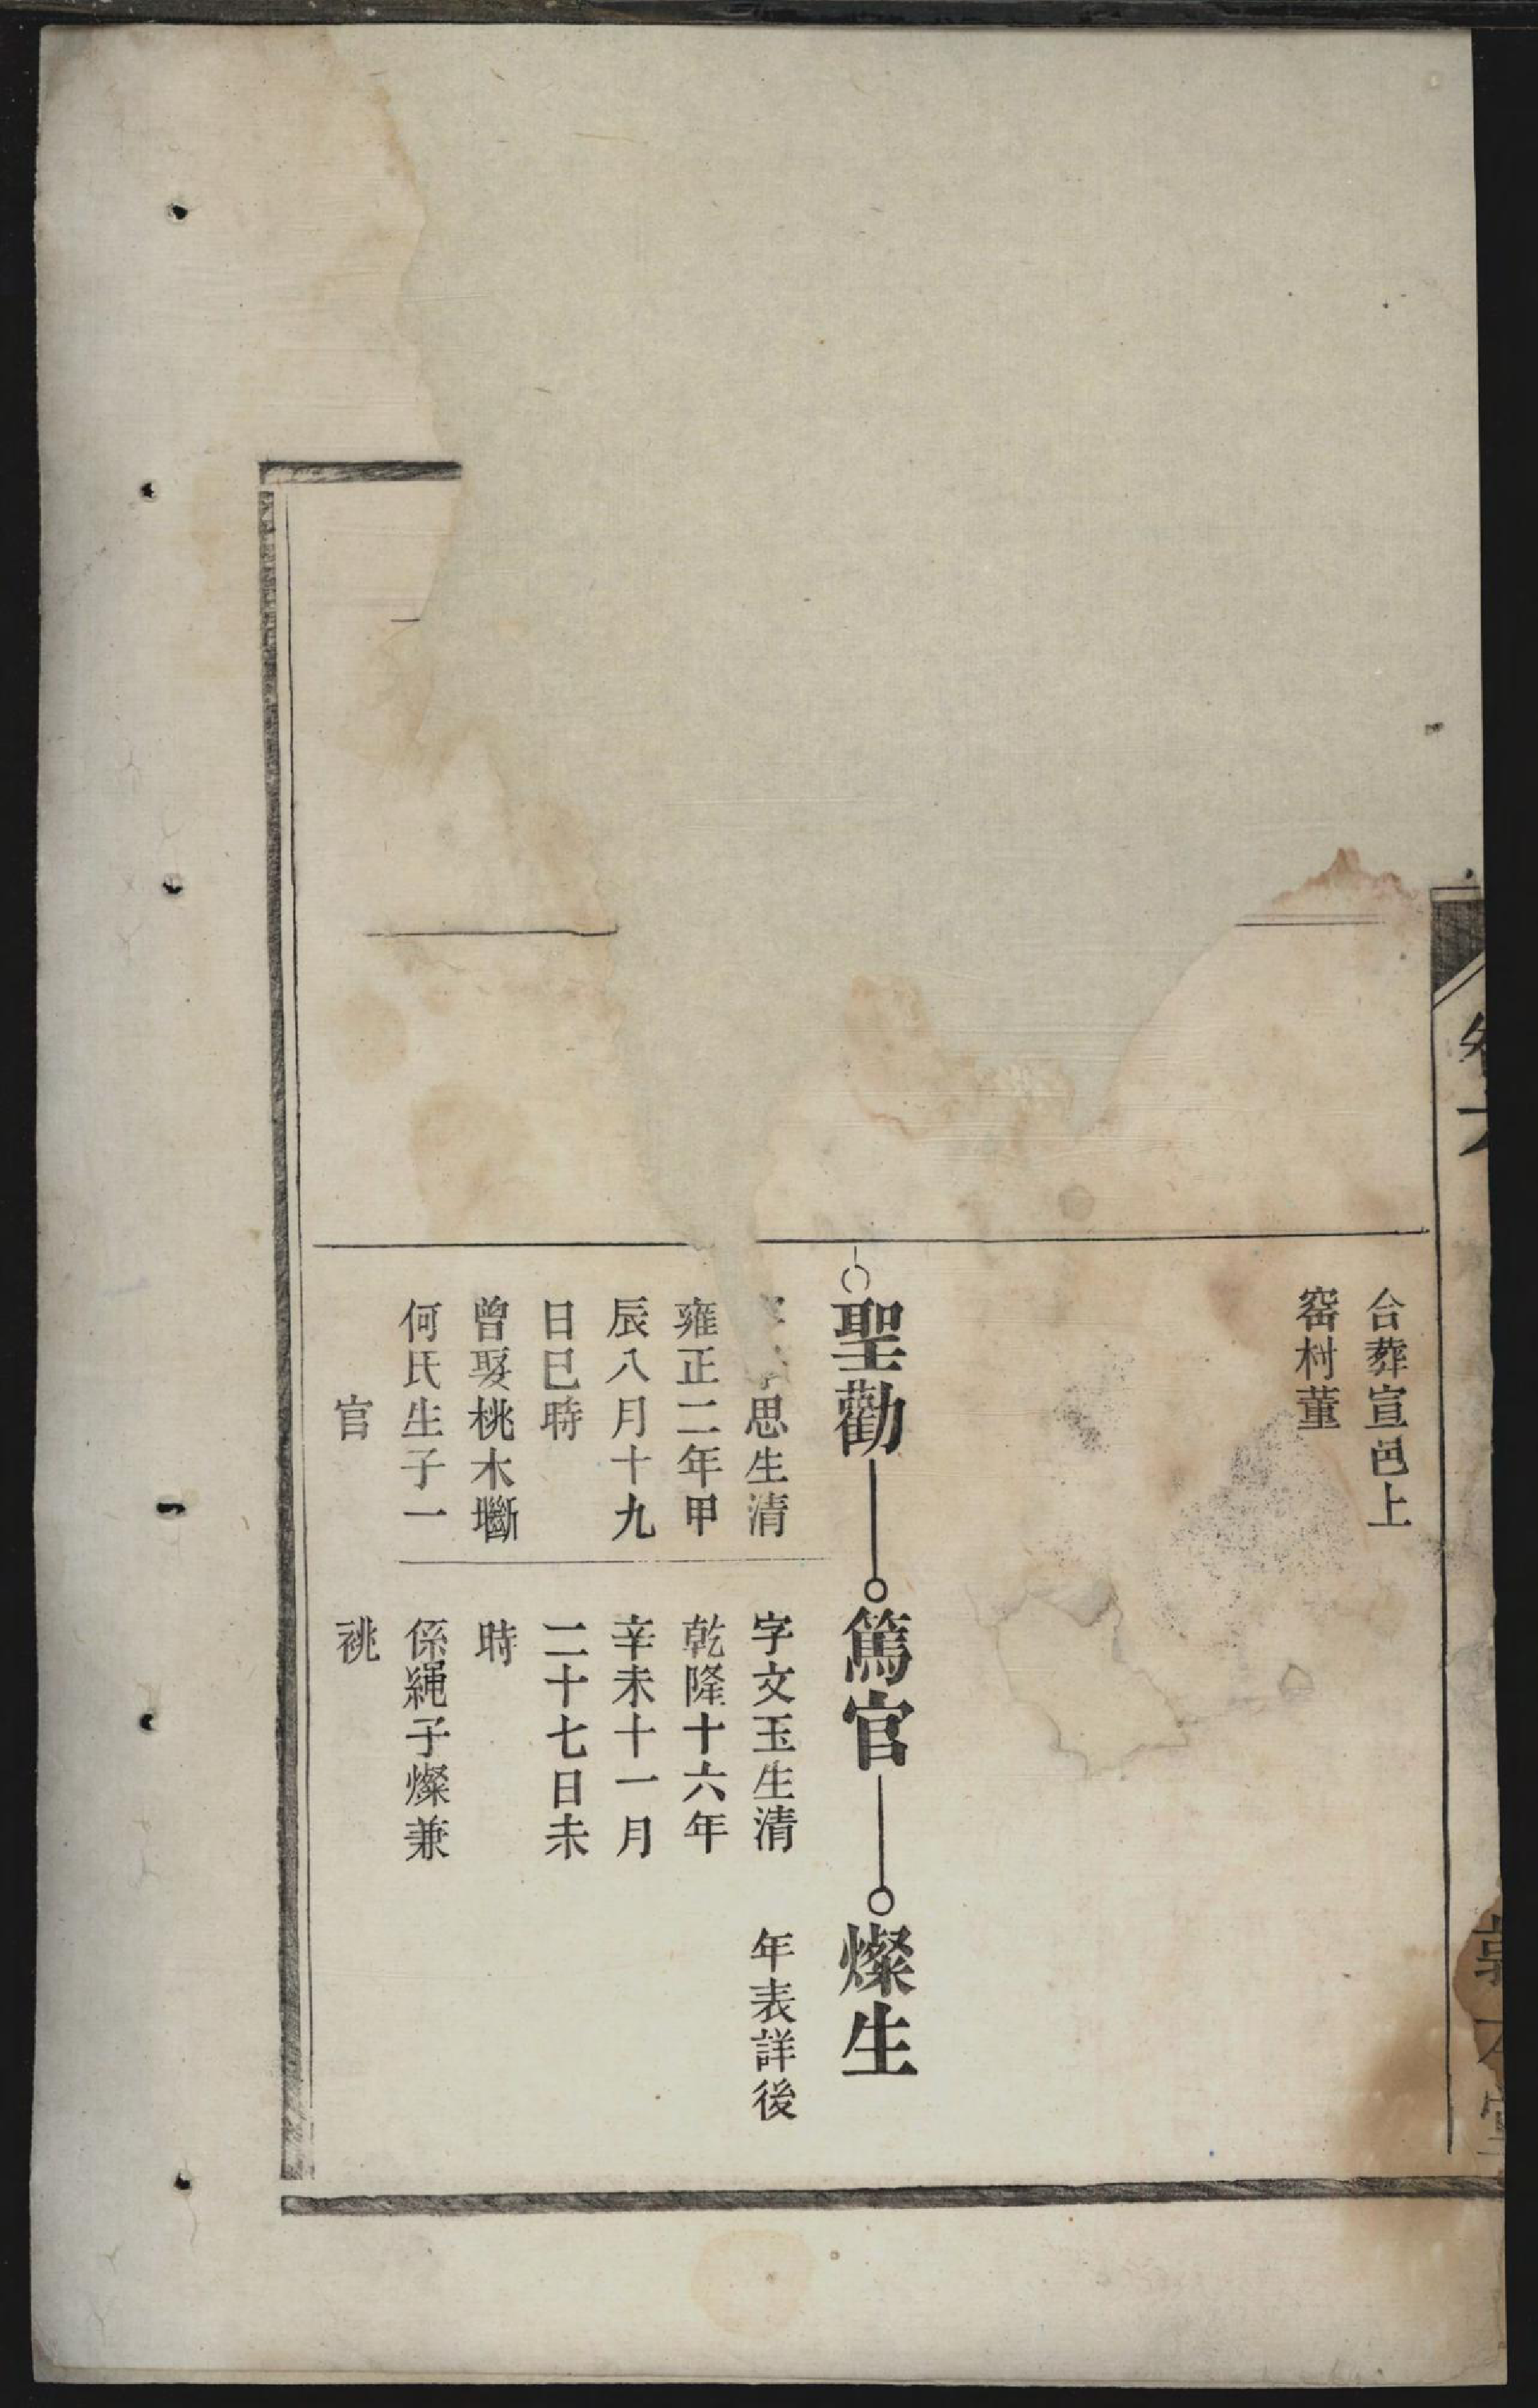 合葬宣邑上
窑村董
聖勸
思生清
雍正二年甲
辰八月十九
日巳時
曾娶桃木壍
何氏生子一
官
篤官
字文玉生清
乾隆十六年
辛未十一月
二十七日未
時
係繩子燦兼
祧
燦生
年表詳後